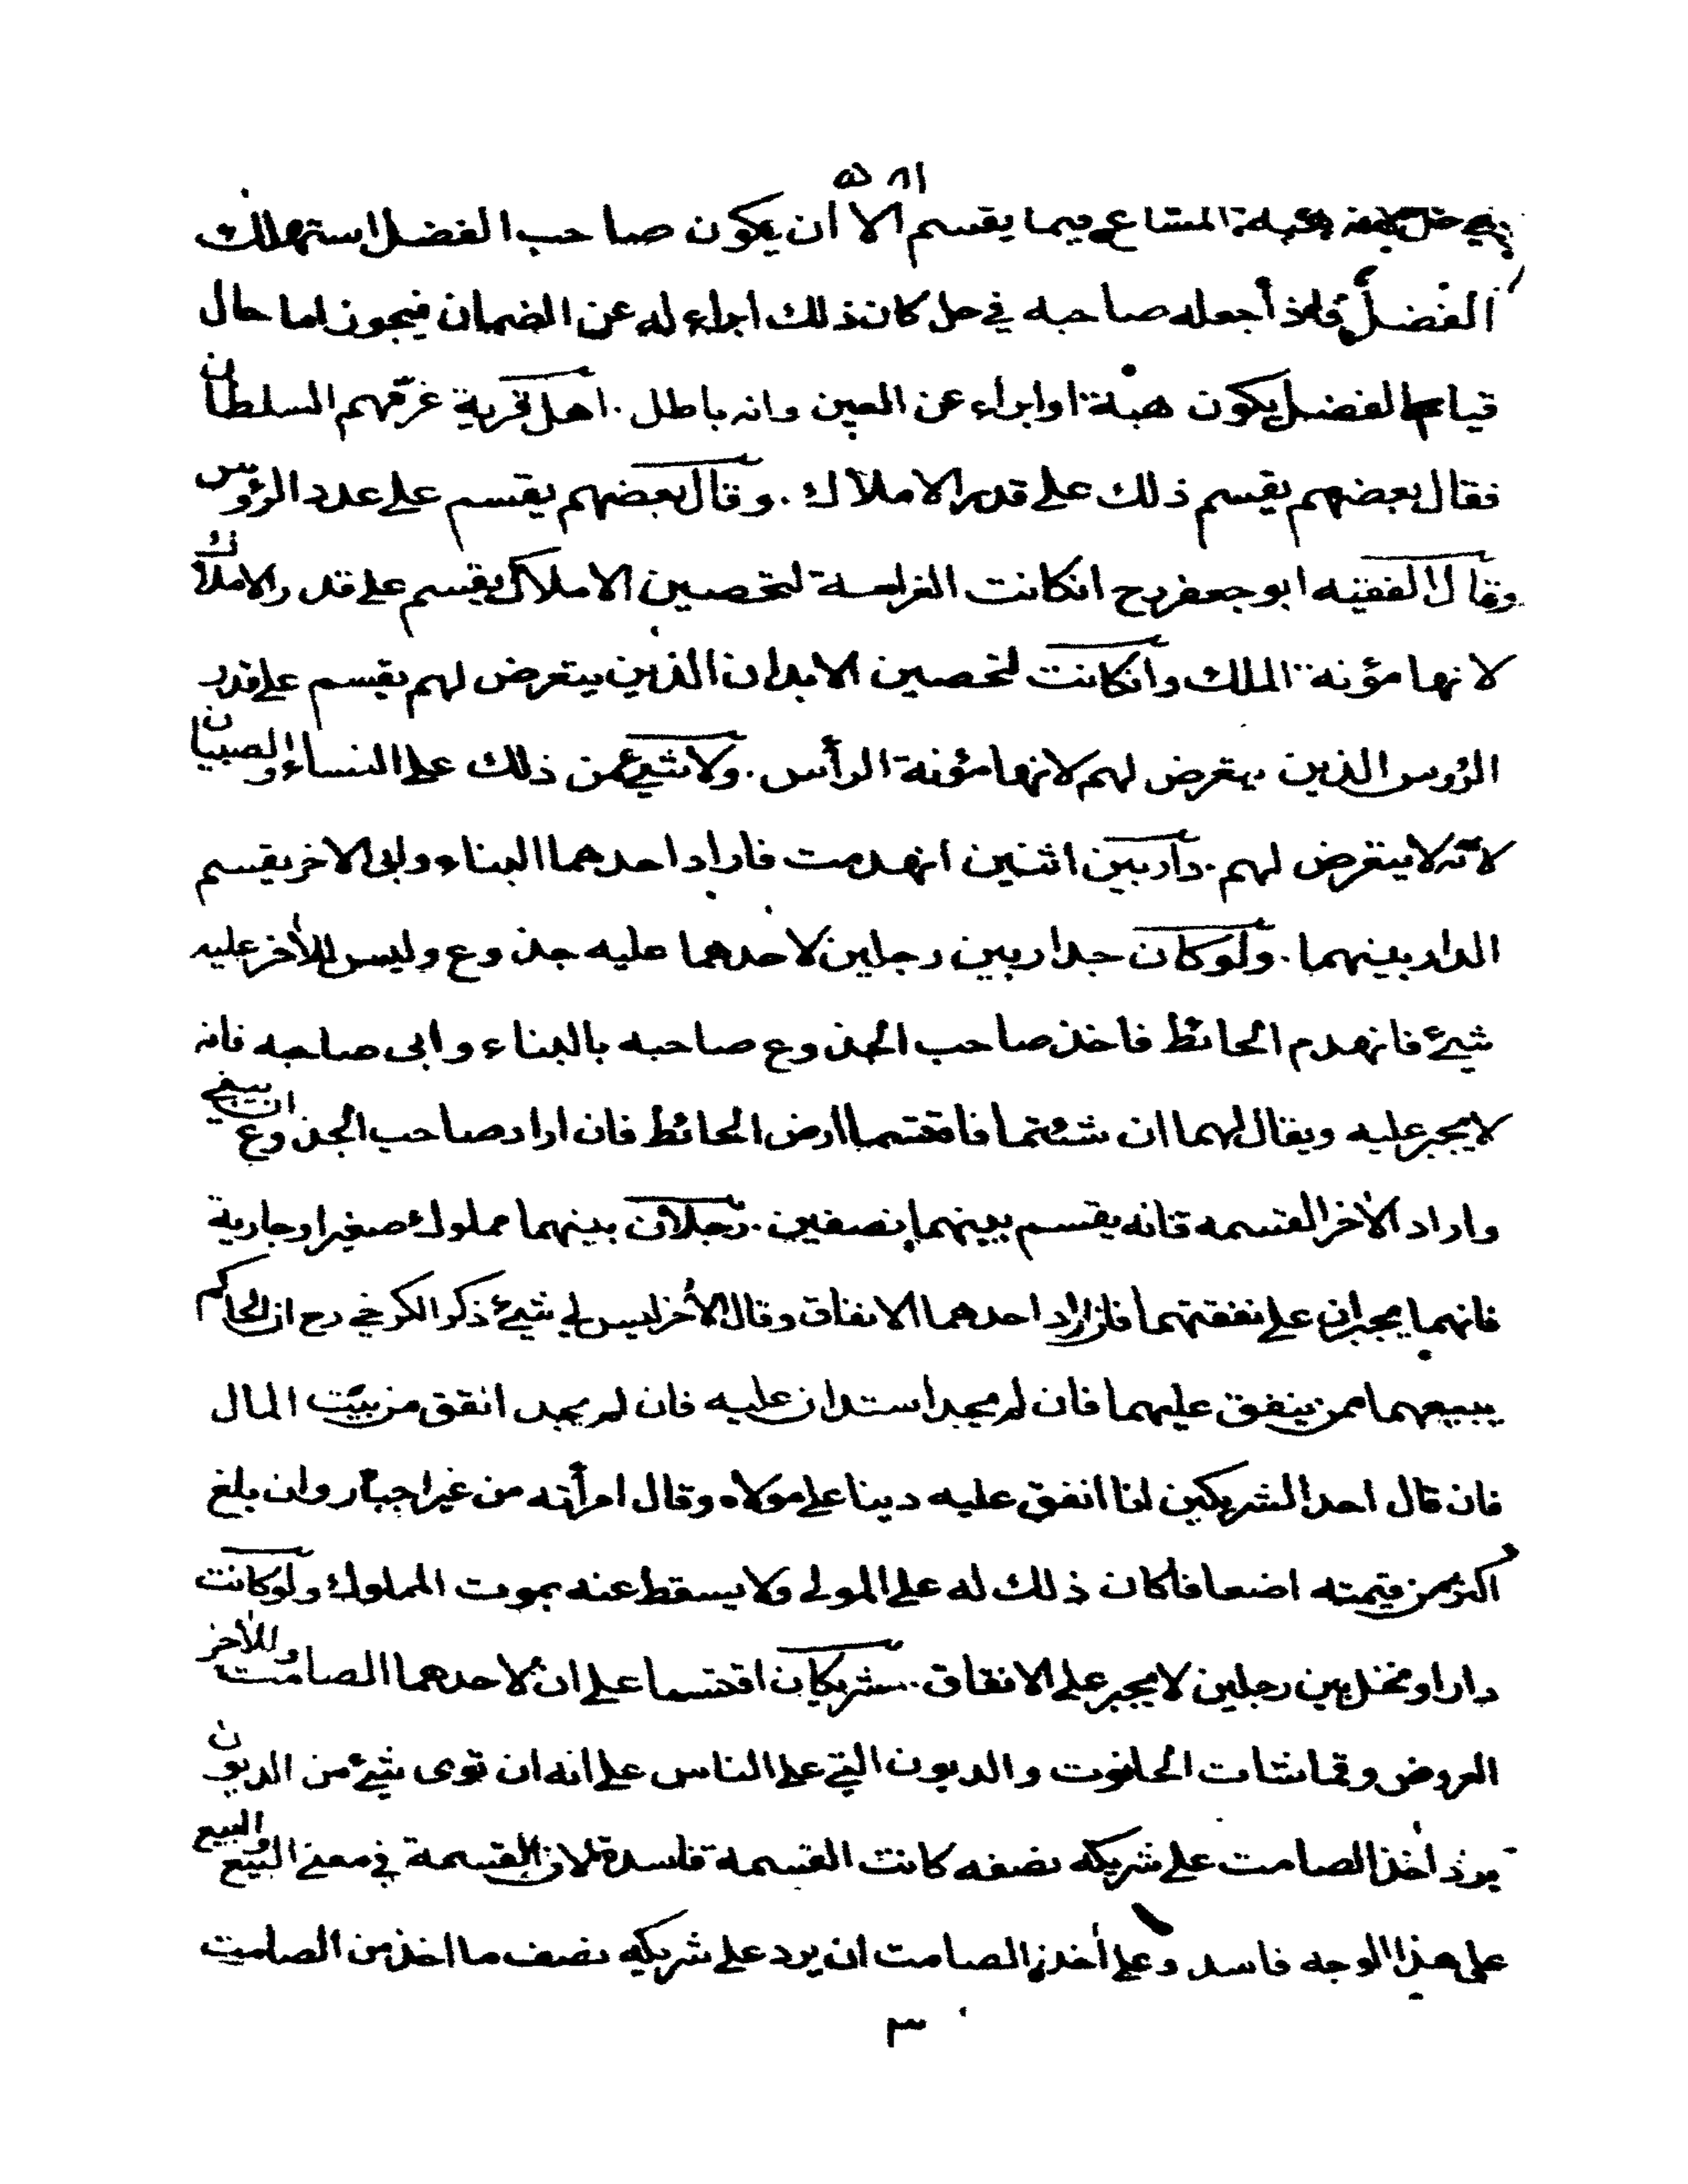 في حل لانه هبة المشاع فيما يقسم الا ان يكون صاحب الفضل استهلك
الفضل فاذا جعله صاحبه في حل كان ذلك ابراء له عن الضمان فيجوز اما حال
قيام الفضل يكون هبة او ابراء عن العين وانه باطل . اهل قرية غرمهم السلطان
فقال بعضهم يقسم ذلك على قدر الاملاك . وقال بعضهم يقسم على عدد الرؤس
وقال الفقيه ابو جعفر رح ان كانت الغرامة لتحصين الاملاك يقسم على قدر الاملاك
لانها مؤنة الملك وان كانت لتحصين الابدان الذين يتعرض لهم يقسم على قدر
الرؤس الذين يتعرض لهم لانها مؤنة الرأس . ولا شيئ من ذلك على النساء والصبيان
لانه لا يتعرض لهم . دار بين اثنين انهدمت فاراد احدهما البناء وابى الاخر يقسم
الدار بينهما . ولو كان جدار بين رجلين لاحدهما عليه جذوع وليس للأخر عليه
شيئ فانهدم الحائط فاخذ صاحب الجذوع صاحبه بالبناء وابى صاحبه فانه
لا يجبر عليه ويقال لهما ان شئتما فاقتسما ارض الحائط فان اراد صاحب الجذوع ان يبني
واراد الأخر القسمه فانه يقسم بينهما نصفين . رجلان بينهما مملوك صغير او جارية
فانهما يجبران على نفقتهما فان اراد احدهما الانفاق وقال الأخر ليس لي شيئ ذكر الكرخي رح ان الحاكم
يبيعهما ممن ينفق عليهما فان لم يجد استدان عليه فان لم يجد انفق من بيت المال
فان قال احد الشريكين انا انفق عليه دينا على مولاه وقال امرأته من غير اجبار وان بلغ
اكثر من قيمته اضعافا كان ذلك له على المولى ولا يسقط عنه بموت المملوك ولو كانت
دارا او نخل بين رجلين لا يجبر على الانفاق . شريكان اقتسما على ان لاحدهما الصامت وللأخر
العروض وقماشات الحانوت والديون التي على الناس على انه ان توى شيئ من الديون
يرد اخذ الصامت على شريكه نصفه كانت القسمة فاسدة لان القسمة في معنى البيع والبيع
على هذا الوجه فاسد وعلى أخذ الصامت ان يرد على شريكه نصف ما اخذ من الصامت